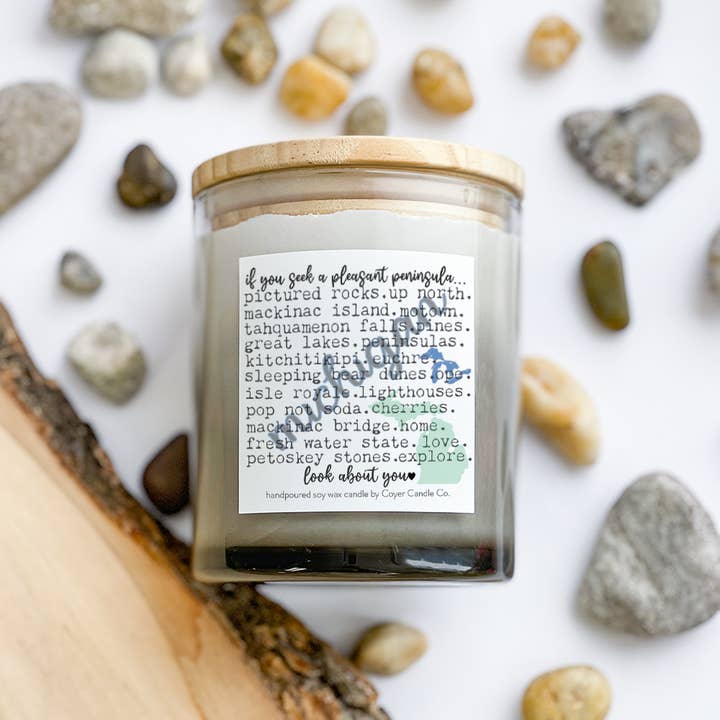 if you seek a pleasant peninsula...
pictured rocks.up north.
mackinac island.motown.
tahquamenon falls.pines.
great lakes.peninsulas.
kitchitikipi.euchre.
sleeping bear dunes.ope.
isle royale.lighthouses.
pop not soda.cherries.
mackinac bridge.home.
fresh water state.love.
petoskey stones.explore.
michigan
look about you♥
handpoured soy wax candle by Coyer Candle Co.